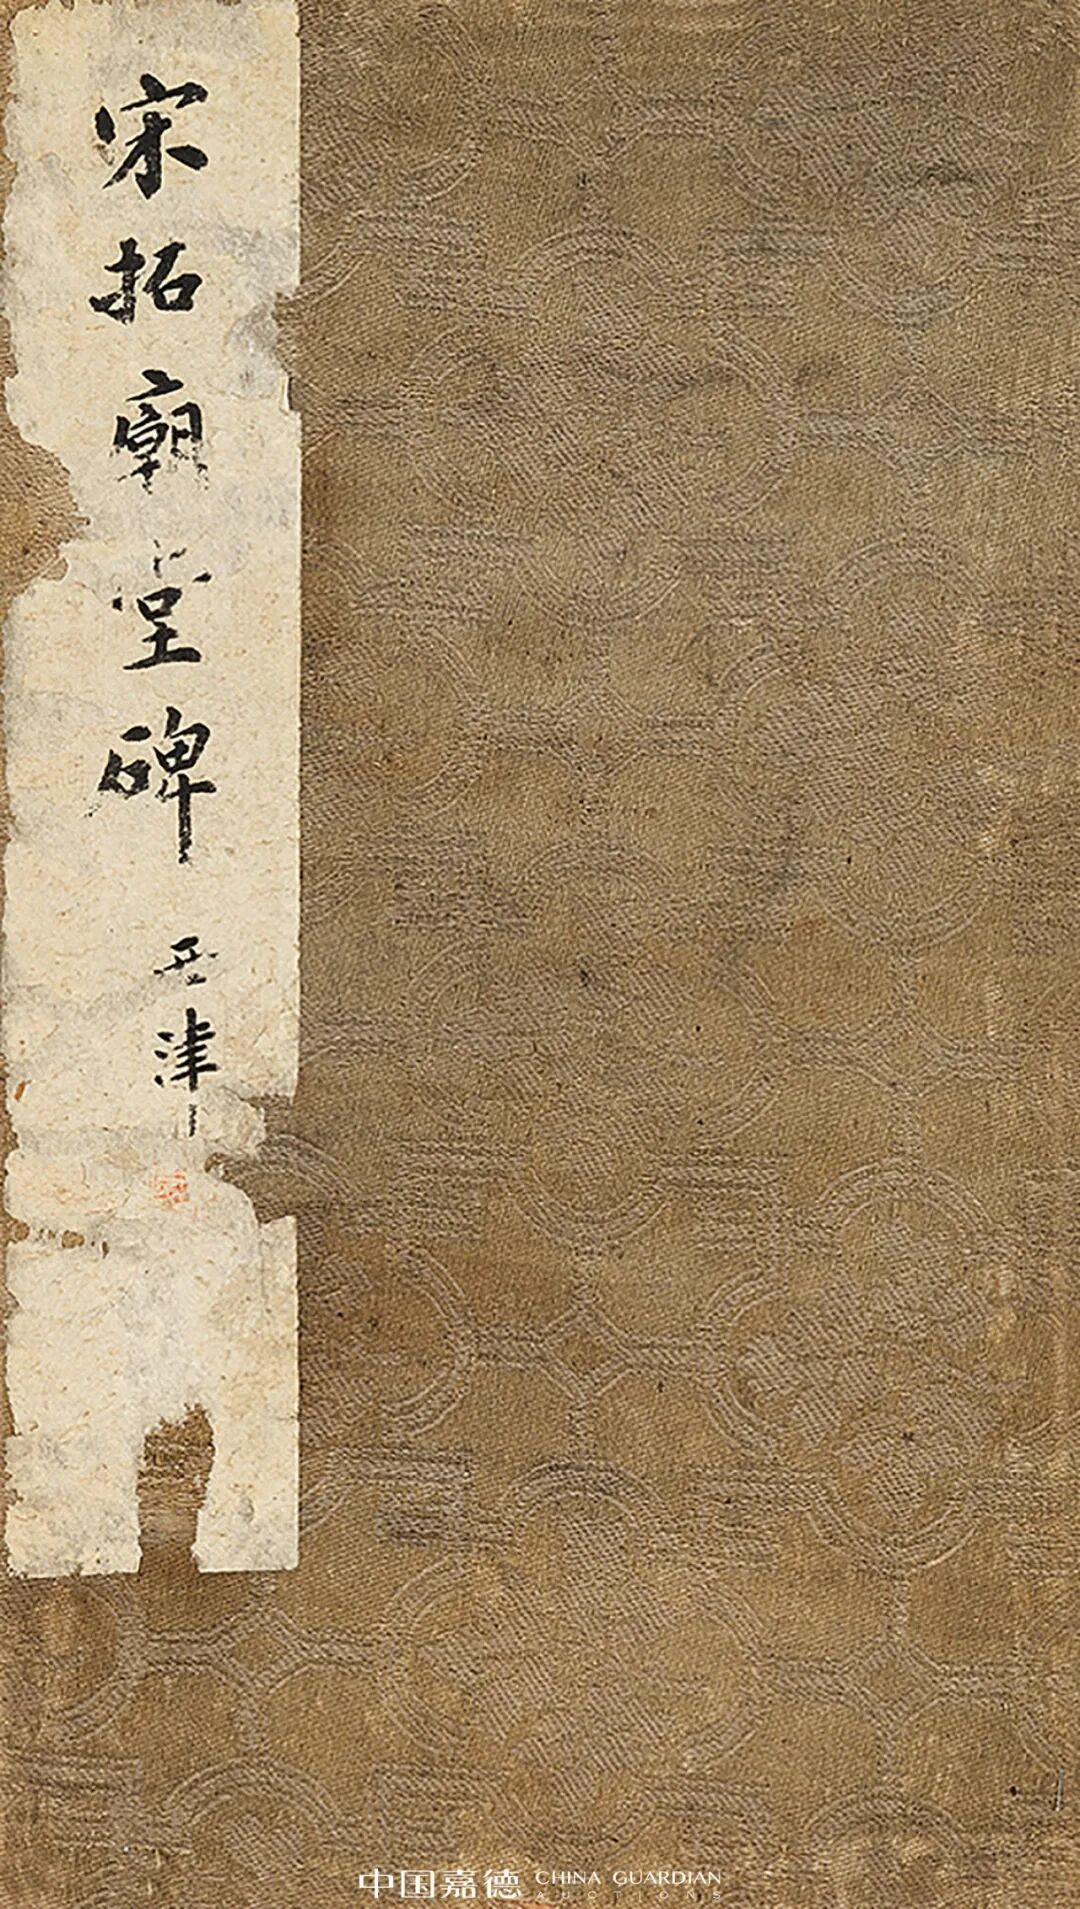 宋拓廟堂碑
津
中国嘉德 CHINA GUARDIAN
AUCTIONS